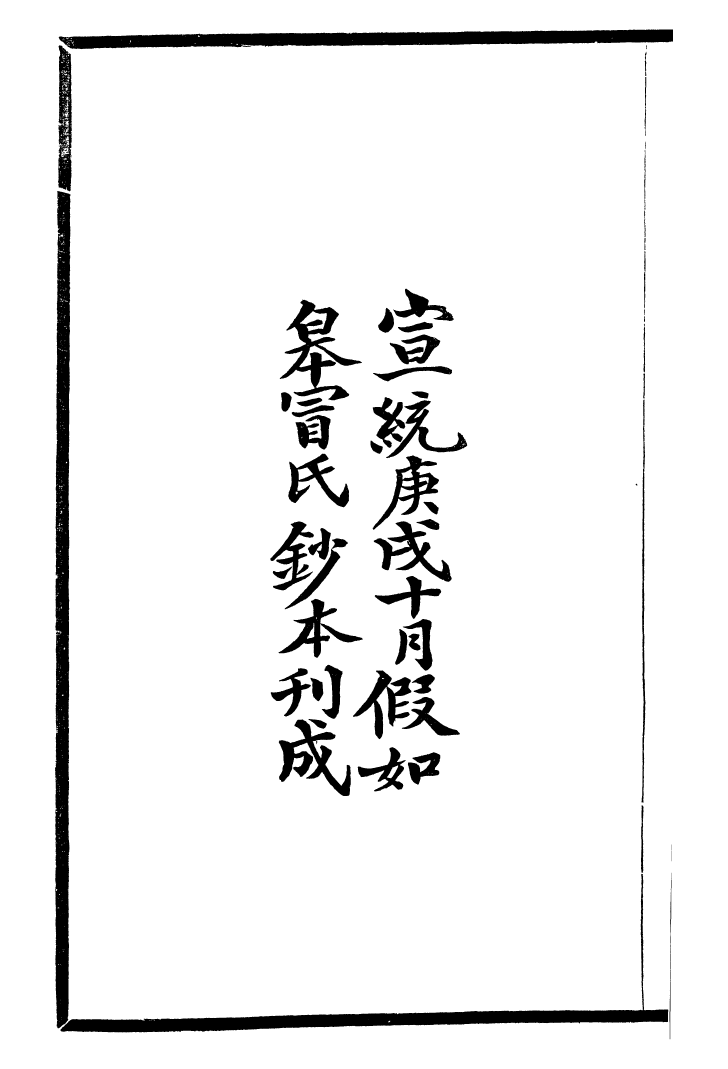 宣統庚戌十月假如
皋冒氏鈔本刊成